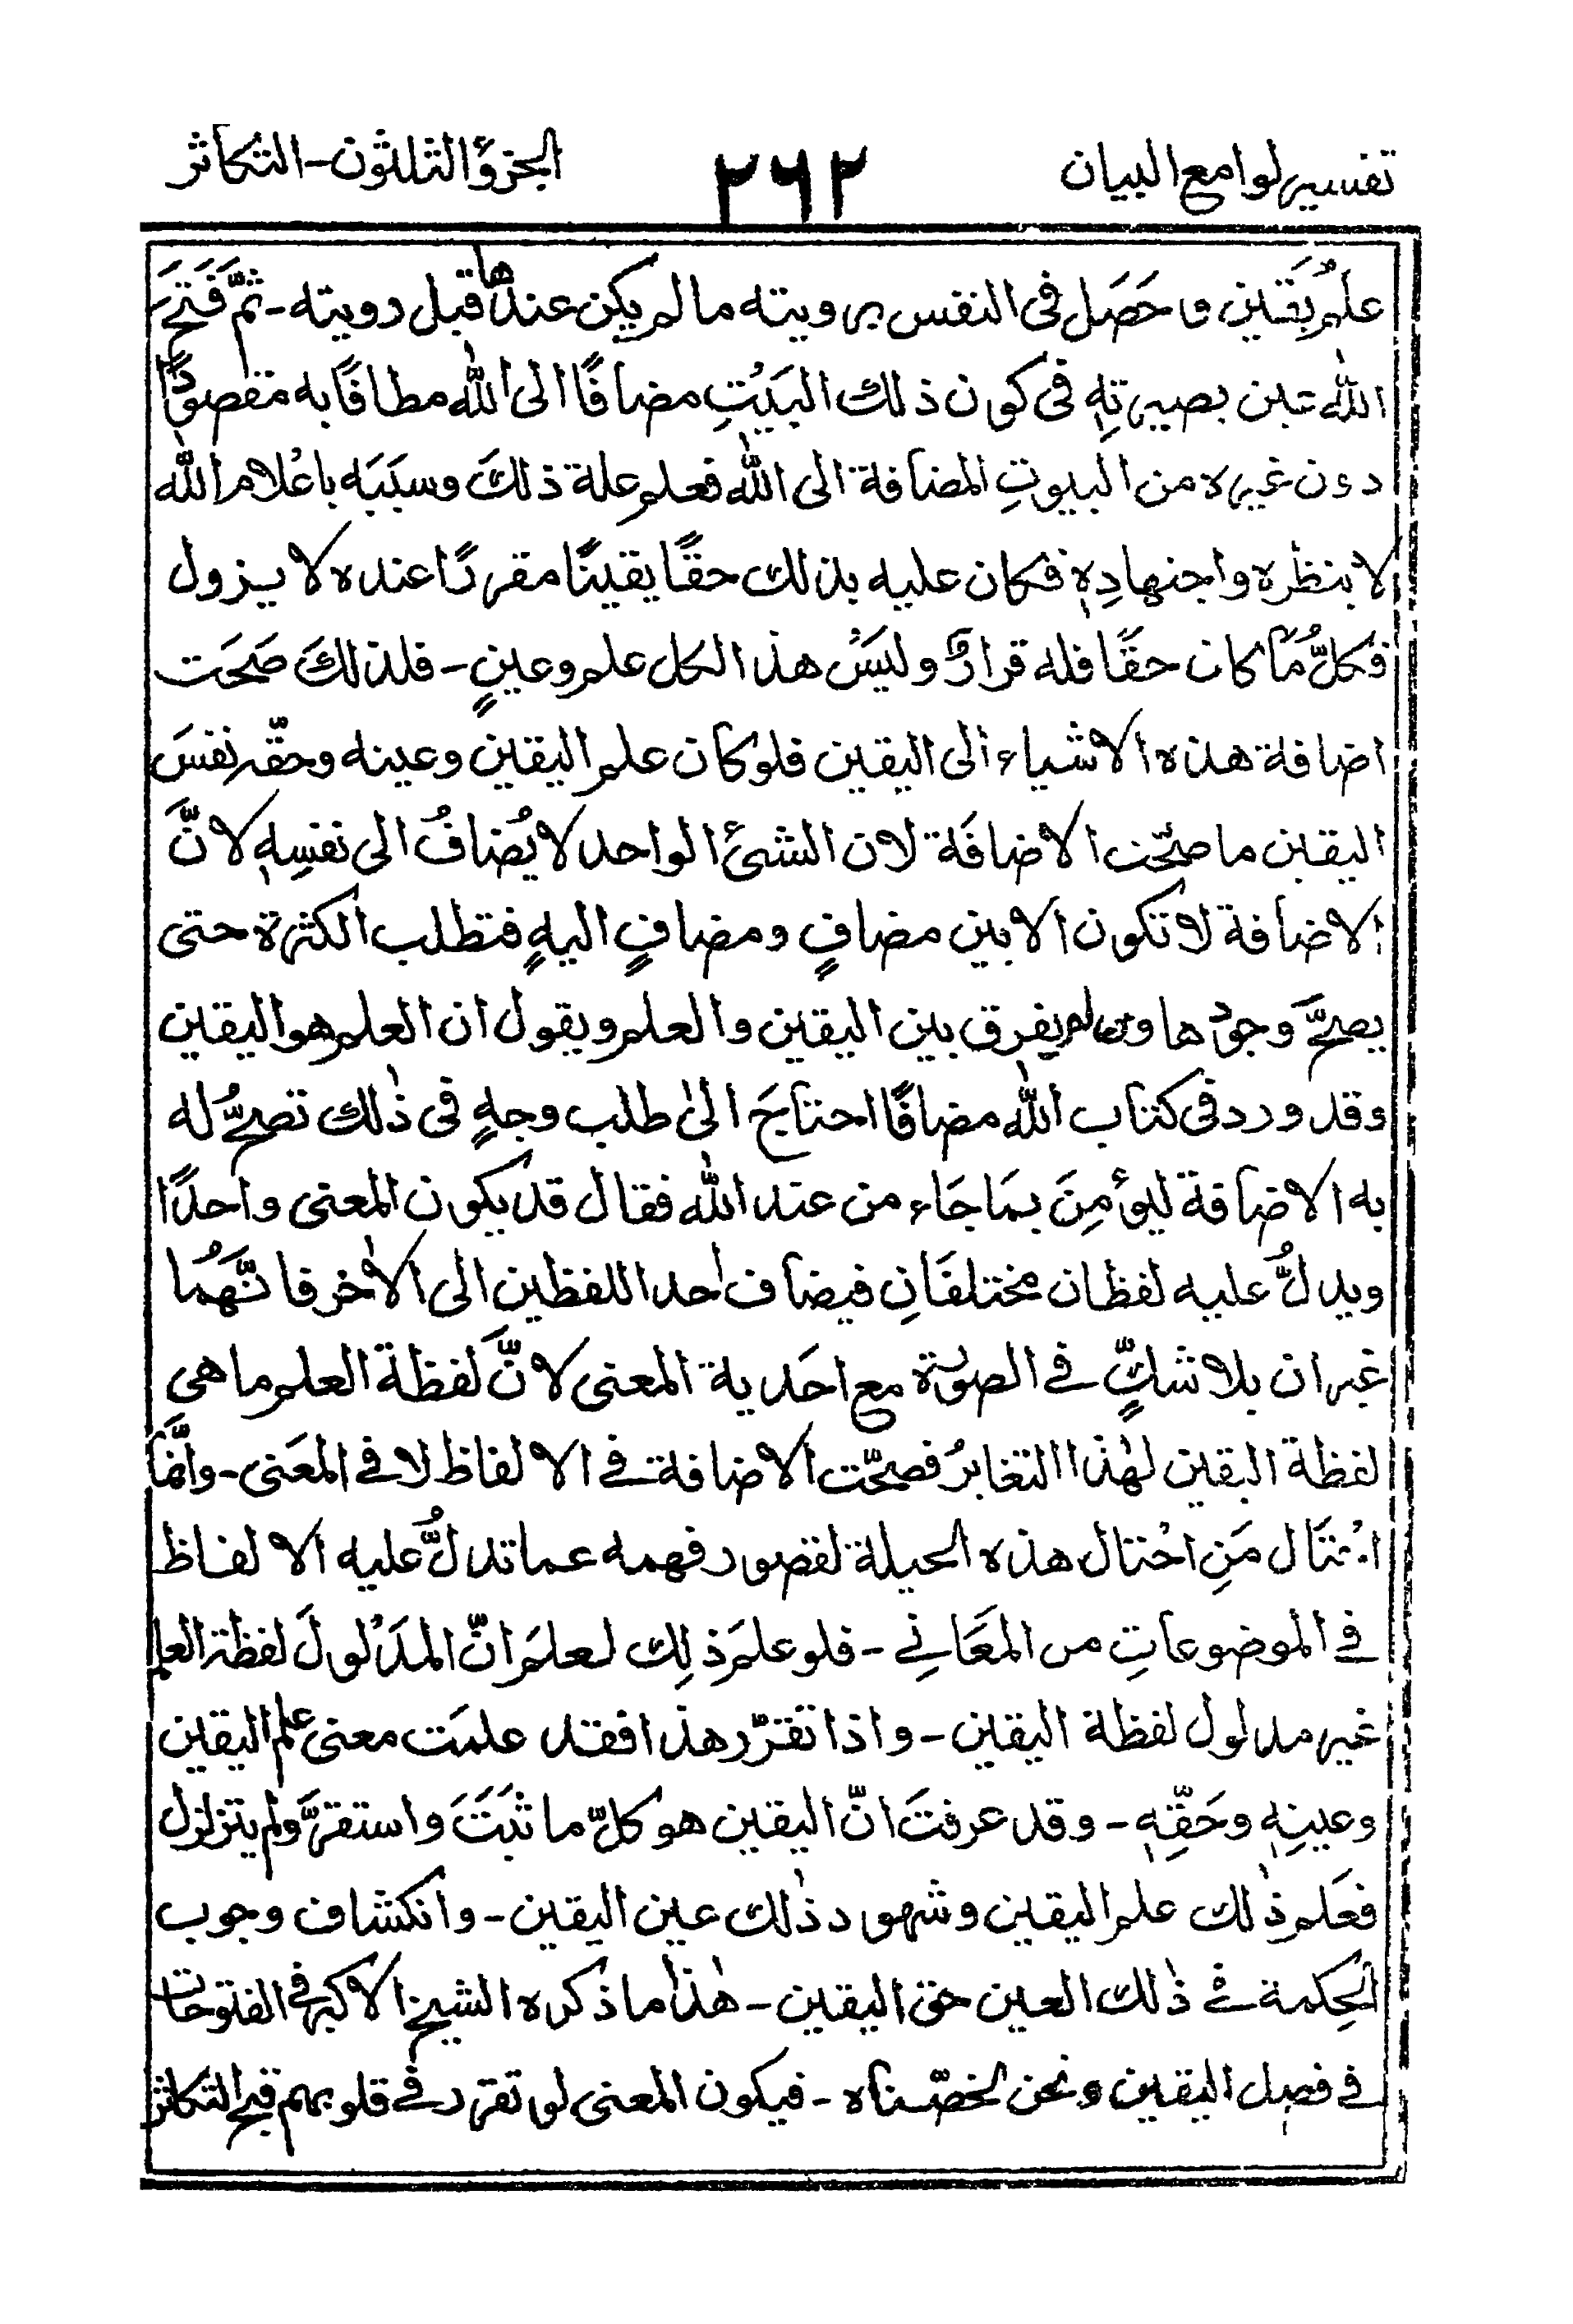 تفسير لوامع البيان ٢٦٢ الجزؤ الثلثون - التكاثر
علمُ يَقين ما حَصَل فى النفس برويته ما لم يكن عندها قبل رويته - ثمّ فَتَحَ
الله عين بصيرتِهٖ فى كون ذلك البَيْتِ مضافًا الى الله مطافًا به مقصودًا
دون غيره من البيوتِ المضافة الى الله فعلم علة ذلكَ وسبَبَه باعْلام الله
لا بنظره واجتهادِهٖ فكان عليه بذلك حقًا يقينًا مقررًا عنده لا يزول
فكلُّ مَا كان حقًا فله قرارٌ وليسَ هذا الكل علم وعينٍ - فلذلكَ صَحَت
اضافة هذه الاشياء الى اليقين فلو كان علم اليقين وعينه وحقّه نفسَ
اليقين ما صحّت الاضافَة لان الشئ الواحد لا يُضافُ الى نفسِهٖ لانَّ
الاضافة لا تكون الا بين مضافٍ ومضافٍ اليهٍ فتطلب الكثرة حتى
يصحَّ وجودها ومن لم يفرق بين اليقين والعلم ويقول ان العلم هو اليقين
وقد ورد فى كتاب الله مضافًا احتاجَ الىٰ طلب وجهٍ فى ذٰلك تصحُّ له
به الاضافة ليؤمِنَ بمَا جَاء من عند الله فقال قد يكون المعنى واحدًا
ويدلُّ عليه لفظان مختلفَانِ فيضاف احد اللفظين الى الاٰخر فانَّهُمَا
غيران بلا شكٍّ فے الصورة مع احَدية المعنى لانَّ لفظة العلم ما هى
لفظة اليقين لهٰذا التغايرُ فصحّت الاضافة فے الالفاظ لا فے المعَنى - وانَّمَا
احْتَال مَنِ احْتال هذه الحيلة لقصور فهمه عما تدلُّ عليه الالفاظ
فے الموضوعاتِ من المعَانے - فلو علمَ ذلِك لعلمَ انّ المدَلُولَ لفظة العلم
غير مدلول لفظة اليقين - واذا تقرّر هذا فقد علمَت معنى علم اليقين
وعينِهٖ وحَقِّهٖ - وقد عرفتَ انّ اليقين هو كلّ ما ثبَتَ واستقرَّ ولم يتزلزل
فعَلم ذٰلك علم اليقين وشهود ذٰلك عين اليقين - وانكشاف وجوب
الحِكمة فے ذٰلك العين حق اليقين - هٰذا ما ذكره الشيخ الاكبر فے الفتوحات
فے فصل اليقين ونحن لخصّناه - فيكون المعنى لو تقرّر فے قلوبهم قبح التكاثر